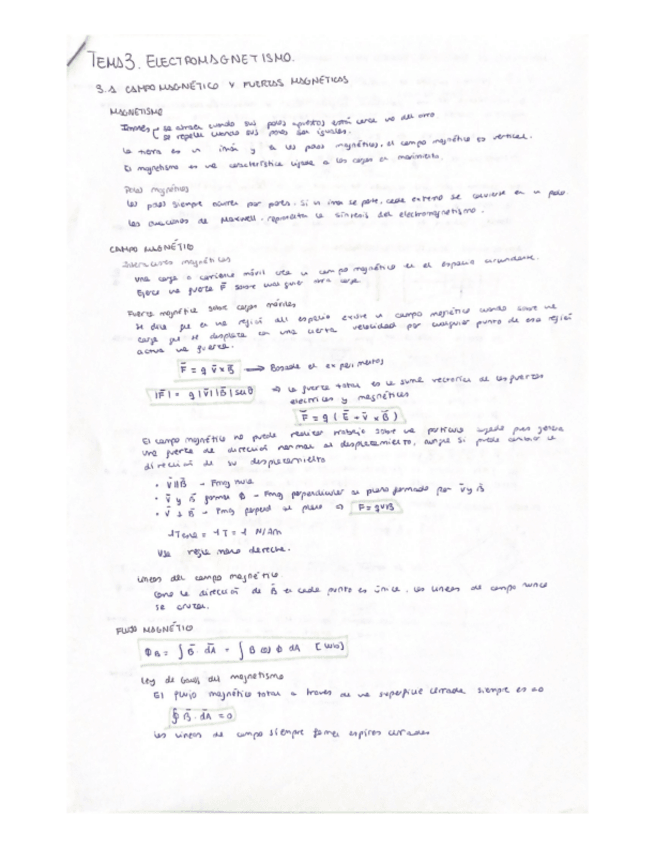 TEMA 3. ELECTROMAGNETISMO.
3.1 CAMPO MAGNÉTICO Y FUERZAS MAGNÉTICAS
MAGNETISMO
Imanes se atraen cuando sus polos opuestos están cerca uno del otro
se repelen cuando sus polos son iguales.
La tierra es un imán y a los polos magnéticos, el campo magnético es vertical.
El magnetismo es una característica ligada a las cargas en movimiento.
Polos magnéticos
Los polos siempre ocurren por pares. Si un imán se parte, cada extremo se convierte en un polo.
Las ecuaciones de Maxwell representan la síntesis del electromagnetismo.
CAMPO MAGNÉTIO
Interacciones magnéticas
Una carga o corriente móvil crea un campo magnético en el espacio circundante.
Ejerce una fuerza F̄ sobre cualquier otra carga.
Fuerza magnética sobre cargas móviles
Se dice que en una región del espacio existe un campo magnético cuando sobre una
carga que se desplaza con una cierta velocidad por cualquier punto de esa región
actúa una fuerza.
F̄ = q v̄ x B̄ → Basada en experimentos
|F̄| = q |v̄| |B̄| senθ ⇒ La fuerza total es la suma vectorial de las fuerzas
eléctricas y magnéticas
F̄ = q ( Ē + v̄ x B̄ )
El campo magnético no puede realizar trabajo sobre una partícula cargada pues genera
una fuerza de dirección normal al desplazamiento, aunque si puede cambiar la
dirección de su desplazamiento
• v̄ ∥ B̄ → Fmag nula
• v̄ y B̄ forman θ → Fmag perpendicular al plano formado por v̄ y B̄
• v̄ ⊥ B̄ → Fmag perpend al plano ⇒ F = qvB
1 Tesla = 1 T = 1 N/Am
Usa regla mano derecha.
Líneas del campo magnético.
Como la dirección de B̄ en cada punto es única, las líneas de campo nunca
se cruzan.
FLUJO MAGNÉTIO
ΦB = ∫ B̄ · dĀ = ∫ B cos ϕ dA [Wb]
Ley de Gauss del magnetismo
El flujo magnético total a través de una superficie cerrada siempre es 0
∮ B̄ · dĀ = 0
Las líneas de campo siempre forman espiras cerradas